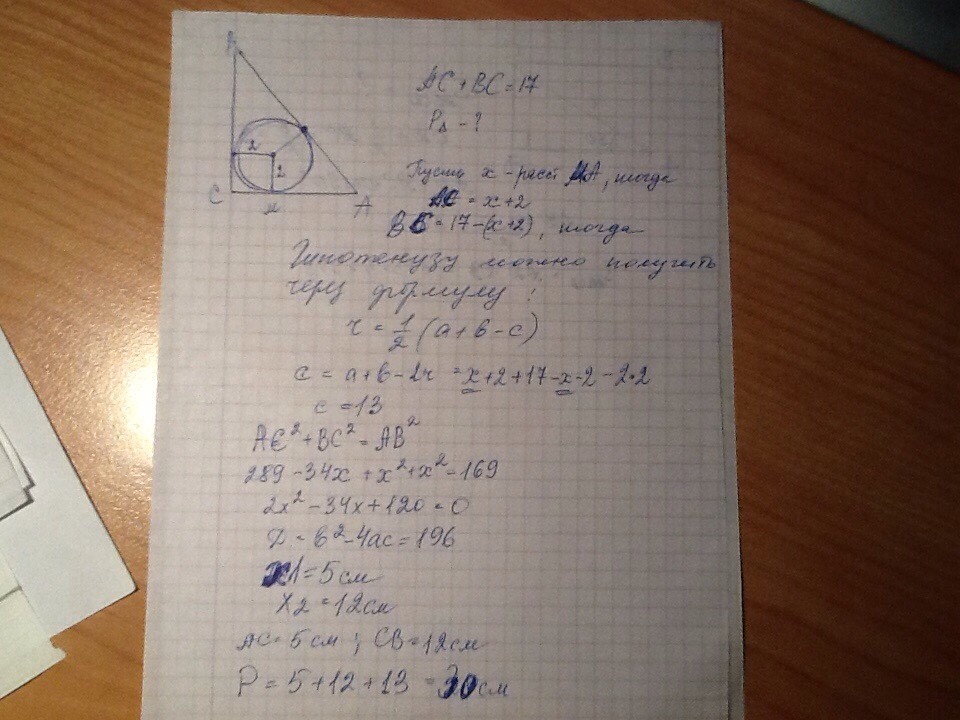 В
2
2
С
м
А
AC + BC = 17
P∆ - ?
Пусть x - расст МА, тогда
AC = x+2
BC = 17 - (x+2), тогда
Гипотенузу можно получить
через формулу:
r = 1/2 (a + b - c)
c = a + b - 2r = x + 2 + 17 - x - 2 - 2·2
c = 13
AC² + BC² = AB²
289 - 34x + x² + x² = 169
2x² - 34x + 120 = 0
D = b² - 4ac = 196
x1 = 5 см
X2 = 12 см
AC = 5 см ; CB = 12 см
P = 5 + 12 + 13 = 30 см